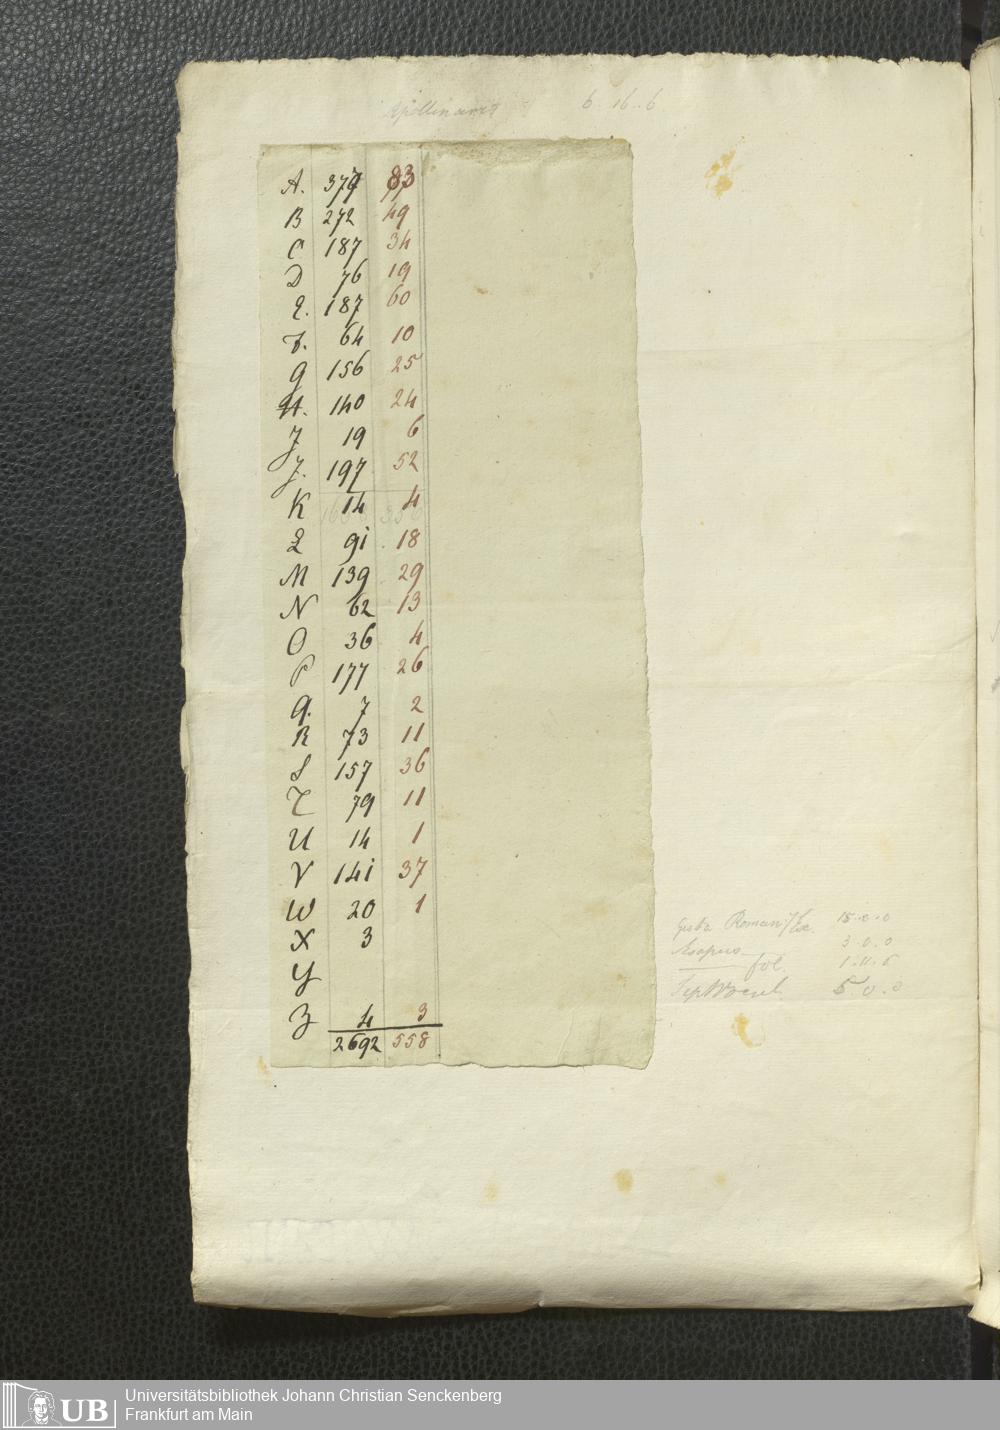 6 16..6
A. 377 83
B 272 49
C 187 34
D 76 19
E. 187 60
F. 64 10
G 156 25
H. 140 24
J 19 6
J. 197 52
K 14 4
L 91 18
M 139 29
N 62 13
O 36 4
P 177 26
Q. 7 2
R 73 11
S 157 36
T 79 11
U 14 1
V 141 37
W 20 1
X 3
Y
Z 4 3
2692 558
Gesta Roman 15.0.0
3.0.0
fol. 1.11.6
5.0.0
UB
Universitätsbibliothek Johann Christian Senckenberg
Frankfurt am Main